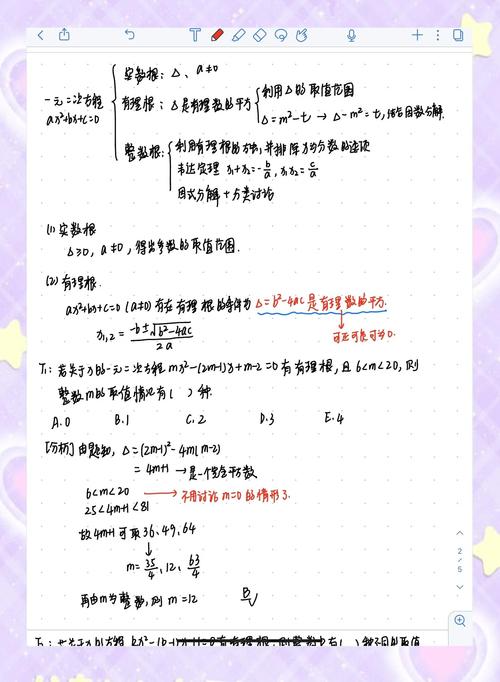 一元二次方程
ax²+bx+c=0
实数根：Δ、a≠0
有理根：Δ是有理数的平方
利用Δ的取值范围
Δ=m²-t → Δ-m²=t，结合因数分解.
整数根：
利用有理根的方法，并排除为分数的选项
韦达定理 x₁+x₂=-b/a，x₁x₂=c/a
因式分解+分类讨论
(1) 实数根
Δ≥0，a≠0，得出参数的取值范围.
(2) 有理根.
ax²+bx+c=0 (a≠0) 有在有理根的条件为 Δ=b²-4ac 是有理数的平方.
x₁,₂=(-b±√(b²-4ac))/2a
可正可负可为0.
T₁：若关于x的一元二次方程 mx²-(2m-1)x+m-2=0有有理根，且6<m<20，则
整数m的取值情况有( )种.
A.0 B.1 C.2 D.3 E.4
[分析] 由题知，Δ=(2m-1)²-4m(m-2)
=4m+1 →是一个完全平方数
6<m<20 → 不用讨论m=0的情形了.
25<4m+1<81
故4m+1可取36、49、64
m=35/4、12、63/4
再由m为整数，则 m=12
B
2
5